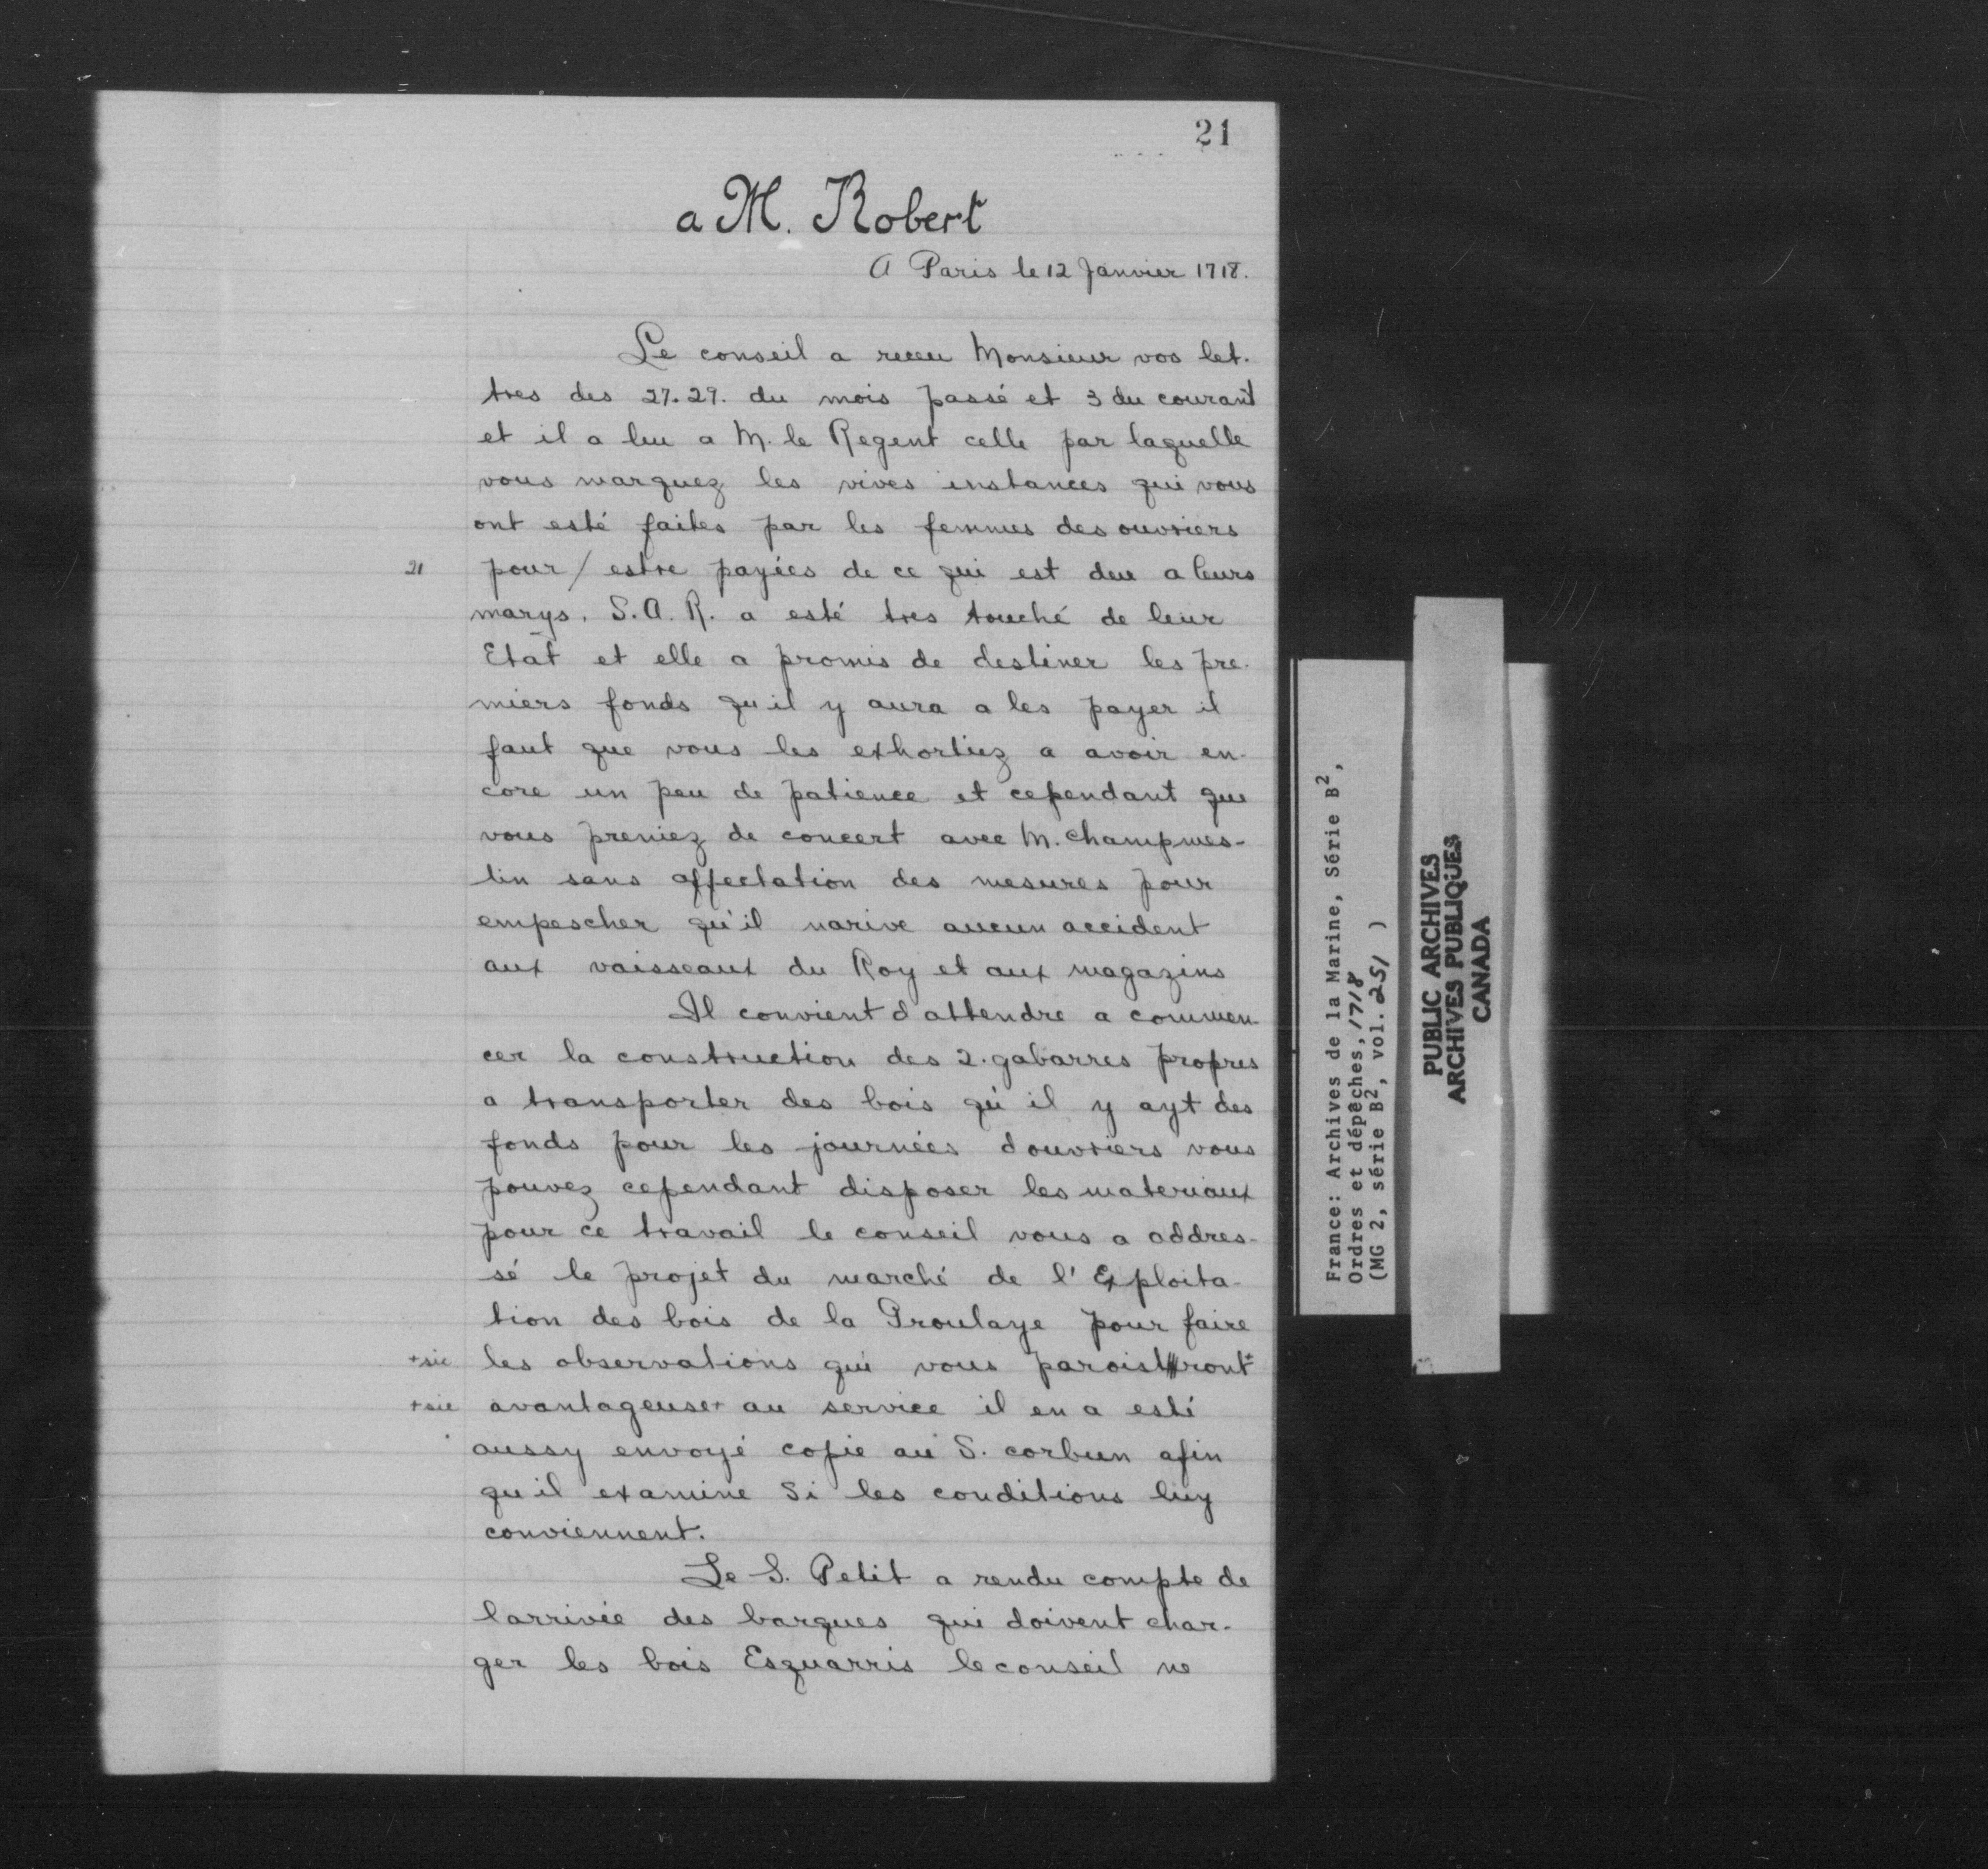 21
a M. Robert
A Paris le 12 Janvier 1718.
Le conseil a receu Monsieur vos let-
tres des 27. 29. du mois passé et 3 du courant
et il a leu a M. le Regent celle par laquelle
vous marquez les vives instances qui vous
ont esté faites par les femmes des ouvriers
21 pour / estre payées de ce qui est deu a leurs
marys. S.A.R. a esté tres touché de leur
Etat et elle a promis de destiner les pre-
miers fonds qu'il y aura a les payer il
faut que vous les exhortiez a avoir en-
core un peu de patience et cependant que
vous preniez de concert avec M. champmes-
lin sans affectation des mesures pour
empescher qu'il narive aucun accident
aux vaisseaux du Roy et aux magazins
Il convient d'attendre a commen-
cer la construction des 2. gabarres propres
a transporter des bois qu'il y ayt des
fonds pour les journées d'ouvriers vous
pouvez cependant disposer les materiaux
pour ce travail le conseil vous a addres-
sé le projet du marché de l'Exploita-
tion des bois de la Proulaye pour faire
+sic les observations qui vous paroistront+
+sic avantageuse+ au service il en a esté
aussy envoyé copie au S. corbun afin
qu'il examine Si les conditions luy
conviennent.
Le S. Petit a rendu compte de
larrivée des barques qui doivent char-
ger les bois Esquarris le conseil ne
France: Archives de la Marine, Série B2,
Ordres et dépêches, 1718
(MG 2, série B2, vol. 251 )
PUBLIC ARCHIVES
ARCHIVES PUBLIQUES
CANADA